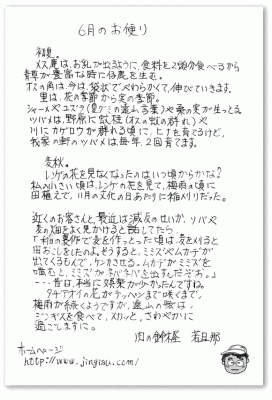 6月のお便り
初夏。
メス鹿は、お乳が出るように、食料を2頭分食べるから
草が豊富な時に仔鹿を生む。
オスの角は、今は、袋状でやわらかくて、伸びていきます。
里は、花の季節から実の季節。
シャーメやユスラ(夏グミの遠山言葉)や桑の実が生っとる
ツバメは、野原に蚊柱(オスの蚊の群れ)や
川にカゲロウが群れる頃に、ヒナを育てるけど、
我家の軒のツバメは毎年、2回育てます。
麦秋。
レンゲの花を見なくなったのはいつ頃からかな?
私の小さい頃は、レンゲの花を見て、梅雨の頃に
田植えで、11月の文化の日あたりに稲刈りだった。
近くのお客さんと、最近は減反のせいか、ソバや
麦の畑をよく見かけると話してたら
「稲の裏作で麦を作っとった頃は、麦を刈ると
田おこしをしたのよ。そうすると、ミミズやムカデが
出てくるもんで、ケンカさせる。ムカデがミミズを
噛むと、ミミズがネバネバを出すんだぞぉ。」
・・・昔は、本当に娯楽が少かったんですね。
タチアオイの花がテッペンまで咲くまで、
梅雨が続くようですが、遠山の衆は、
ジンギスを食べて、スカッと、さわやかに
過ごしますに。
肉の鈴木屋 若旦那
ホームページ
http://www.jingisu.com/